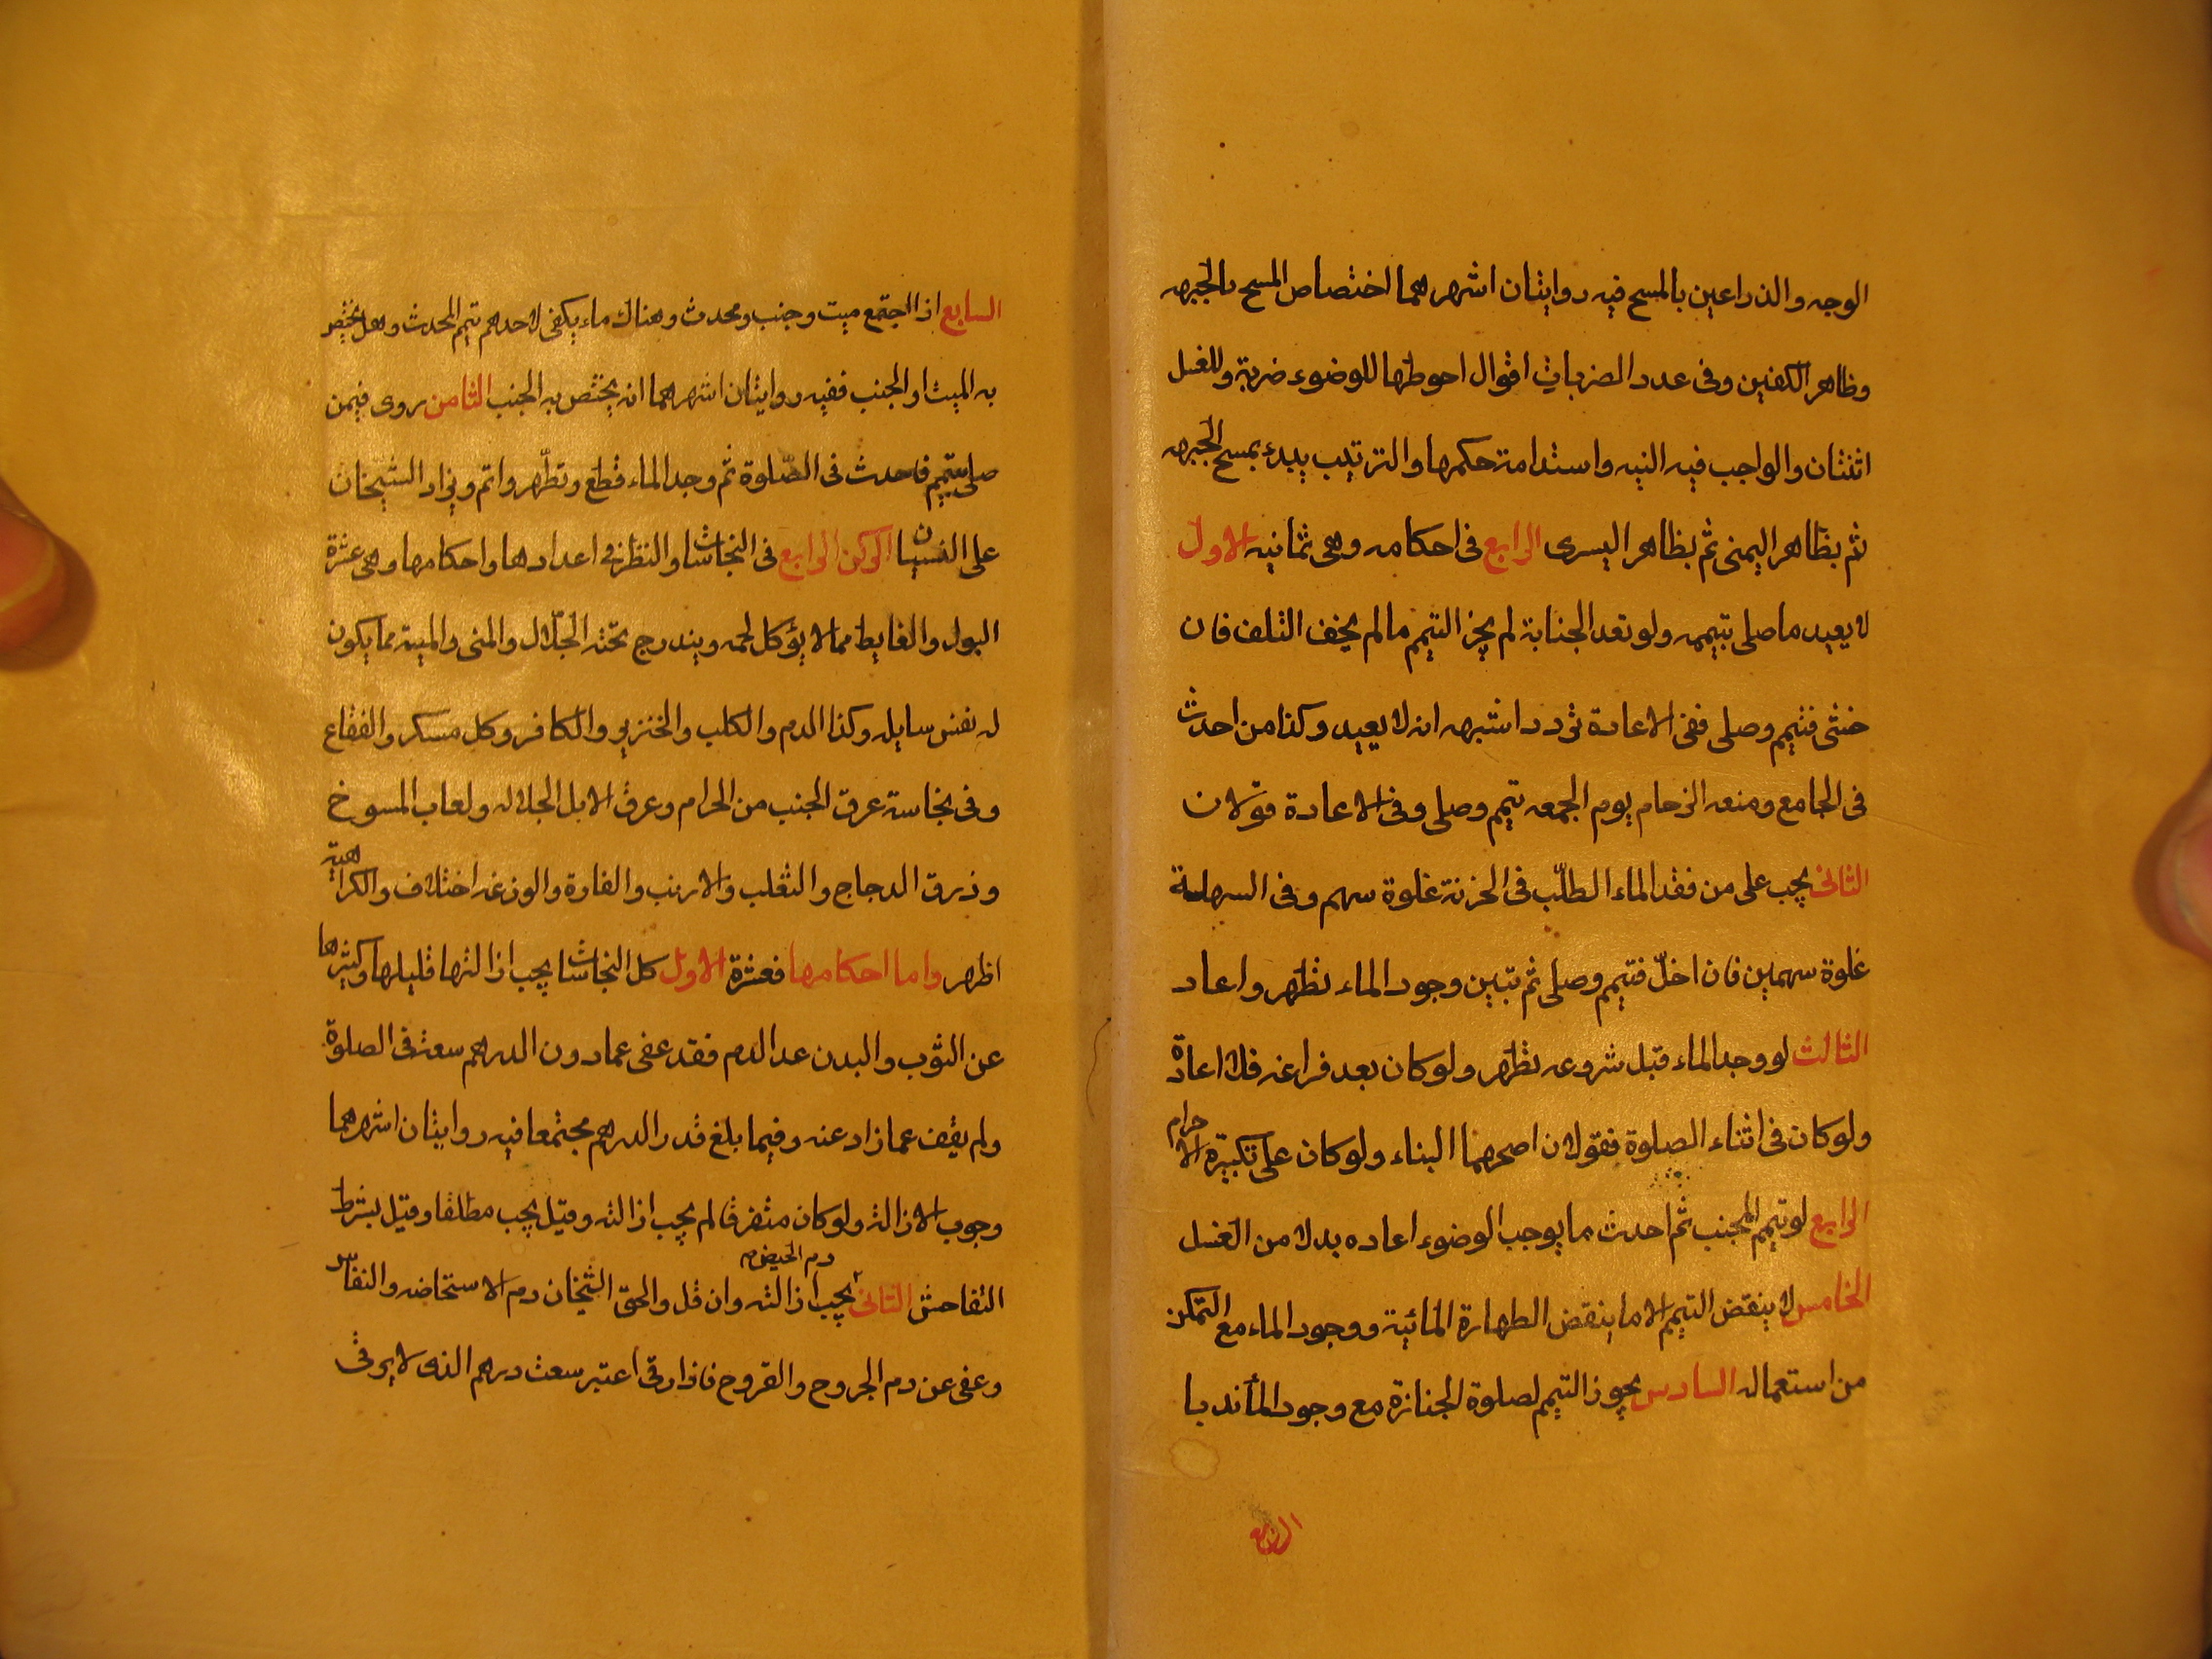 الوجه والذراعين بالمسح فيه روايتان اشهرهما اختصاص المسح بالجبهه
وظاهر الكفين وفى عدد الضربات اقوال احوطها للوضوء ضربة وللغسل
اثنتان والواجب فيه النيه واستدامة حكمها والترتيب يبدء بمسح الجبهه
ثم بظاهر اليمنى ثم بظاهر اليسرى الرابع فى احكامه وهى ثمانيه الاول
لا يعيد ما صلى بتيممه ولو تعمد الجنابة لم يجز التيمم ما لم يخف التلف فان
خشى فتيمم وصلى ففى الاعادة تردد اشبهه انه لا يعيد وكذا من احدث
فى الجامع ومنعه الزحام يوم الجمعه تيمم وصلى وفى الاعادة قولان
الثانى يجب على من فقد الماء الطلب فى الحزنة غلوة سهم وفى السهلة
غلوة سهمين فان اخلّ فتيمم وصلى ثم تبين وجود الماء تطهر واعاد
الثالث لو وجد الماء قبل شروعه تطهر ولو كان بعد فراغه فلا اعادة
ولو كان فى اثناء الصلوة فقولان اصحهما البناء ولو كان على تكبيرة الاحرام
الرابع لو تيمم المجنب ثم احدث ما يوجب الوضوء اعاده بدلا من الغسل
الخامس لا ينقض التيمم الا ما ينقض الطهارة المائية ووجود الماء مع التمكن
من استعماله السادس يجوز التيمم لصلوة الجنازة مع وجود الماء ندبا
السابع اذا اجتمع ميت وجنب ومحدث وهناك ماء يكفى لاحدهم تيمم المحدث وهل يختص
به الميت او الجنب ففيه روايتان اشهرهما انه يختص به الجنب الثامن روى فيمن
صلى بتيمم فاحدث فى الصّلوة ثم وجد الماء قطع وتطّهر واتم ونزاد الشيخان
على النسيان الركن الرابع فى النجاسات والنظر فى اعدادها واحكامها وهى عشرة
البول والغايط مما لا يؤكل لحمه ويندرج تحته الجلّال والمنى والميتة مما يكون
له نفس سايله وكذا الدم والكلب والخنزير والكافر وكل مسكر والفقاع
وفى نجاسة عرق الجنب من الحرام وعرق الابل الجلاله ولعاب المسوخ
وذرق الدجاج والثعلب والارنب والفارة والوزغه اختلاف والكراهية
اظهر واما احكامها فعشرة الاول كل النجاسات يجب ازالتها قليلها وكثيرها
عن الثوب والبدن عدا الدم فقد عفى عما دون الدرهم سعة فى الصلوة
ولم يقف عما زاد عنه وفيما بلغ قدر الدرهم مجتمعا فيه روايتان اشهرهما
وجوب الازالة ولو كان متفرقا لم يجب ازالته وقيل يجب مطلقا وقيل بشرط
دم الحيض م
التفاحش الثانى يجب ازالته وان قل والحق الشيخان دم الاستحاضه والنفاس
وعفى عن دم الجروح والقروح فاذا رقى اعتبر سعة درهم الذى لا يرقى